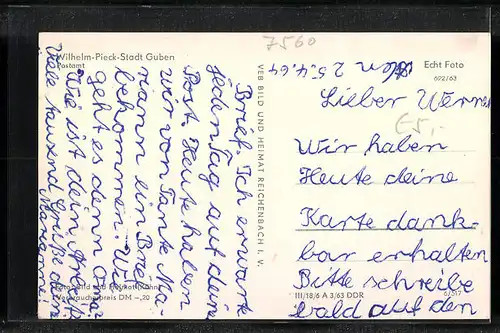 7560
Wilhelm-Pieck-Stadt Guben
Postamt
VEB BILD UND HEIMAT REICHENBACH I. V.
Echt Foto
602/63
den 25.4.64
Lieber Werner
Wir haben
Heute deine
Karte dank-
bar erhalten
Bitte schreibe
bald auf den
Brief Ich erwarte
jeden Tag auf deine
Post. Heute haben
wir von Tante Ma-
riann ein Brief
bekommen. Wie
geht es denn Oma?
Wie ist dein
Viele tausend Grüße deine
Marianne.
€5,-
Verbraucherpreis DM -,20
III/18/6 A 3/63 DDR